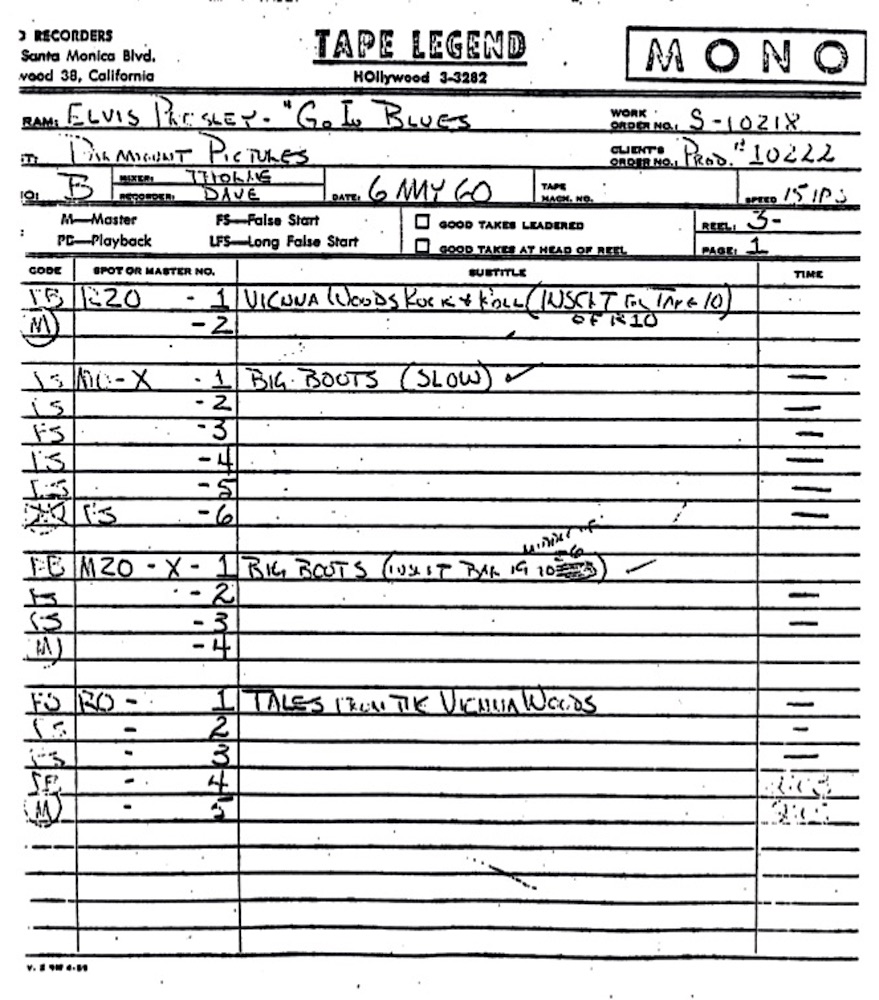 RECORDERS TAPE LEGEND MONO
Santa Monica Blvd.
wood 38, California HOllywood 3-3282
RAM: ELVIS PRESLEY - "G.I. BLUES WORK ORDER NO.: S-10218
T: PARAMOUNT PICTURES CLIENT'S ORDER NO.: PROD. # 10222
IO: B MIXER: THORNE RECORDER: DAVE DATE: 6 MAY 60 TAPE MACH. NO. SPEED 15 IPS
M—Master FS—False Start GOOD TAKES LEADERED REEL: 3-
PB—Playback LFS—Long False Start GOOD TAKES AT HEAD OF REEL PAGE: 1
CODE SPOT OR MASTER NO. SUBTITLE TIME
PB R20 - 1 VIENNA WOODS ROCK & ROLL (INSERT TAPE 10)
M - 2 OF R10
FS MO-X - 1 BIG BOOTS (SLOW) ✓ —
FS - 2 —
FS - 3 —
FS - 4 —
- 5 —
FS - 6
PB M20 - X - 1 BIG BOOTS (INSERT BAR 19 TO) ✓
FS - 2 —
FS - 3 —
M - 4
FS RO - 1 TALES FROM THE VIENNA WOODS —
FS - 2 -
FS - 3 —
PB - 4
M - 5